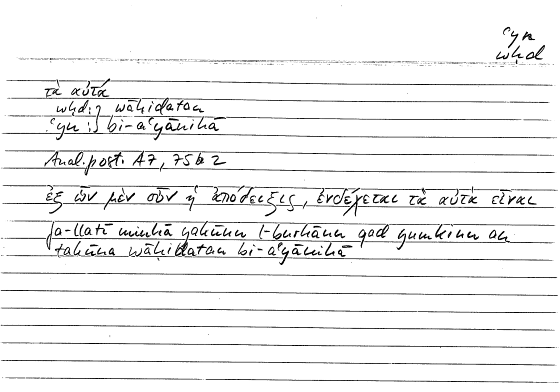 ʿyn
wḥd
τὰ αὐτά
wḥd:} wāḥidatan
ʿyn :} bi-aʿyānihā
Anal. post. A7, 75b2
ἐξ ὧν μὲν οὖν ἡ ἀπόδειξις, ἐνδέχεται τὰ αὐτὰ εἶναι
fa-llatī minhā yakūnu l-burhānu qad yumkinu an
takūna wāḥidatan bi-aʿyānihā